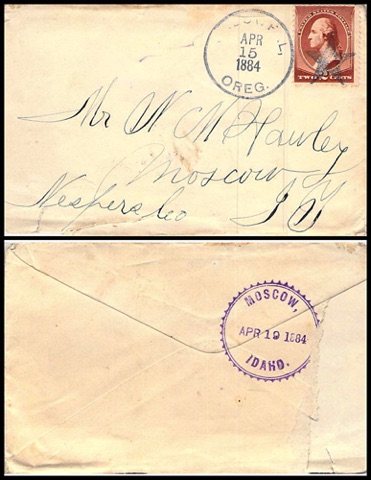 APR
15
1884
OREG.
TWO CENTS
Mr W M Hawley
Moscow
Nespers Co I Y
MOSCOW,
APR 19 1884
IDAHO.